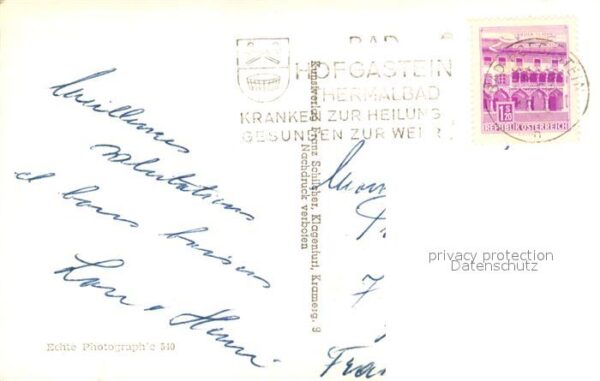 BAD
HOFGASTEIN
THERMALBAD
KRANKEN ZUR HEILUNG
GESUNDEN ZUR WEHR
1 S 20
REPUBLIK ÖSTERREICH
Meilleures
salutations
et bons baisers
Henri
Kunstverlag Franz Schilcher, Klagenfurt, Kramerg. 9
Nachdruck verboten
Echte Photographie 540
7
Fran
privacy protection
Datenschutz